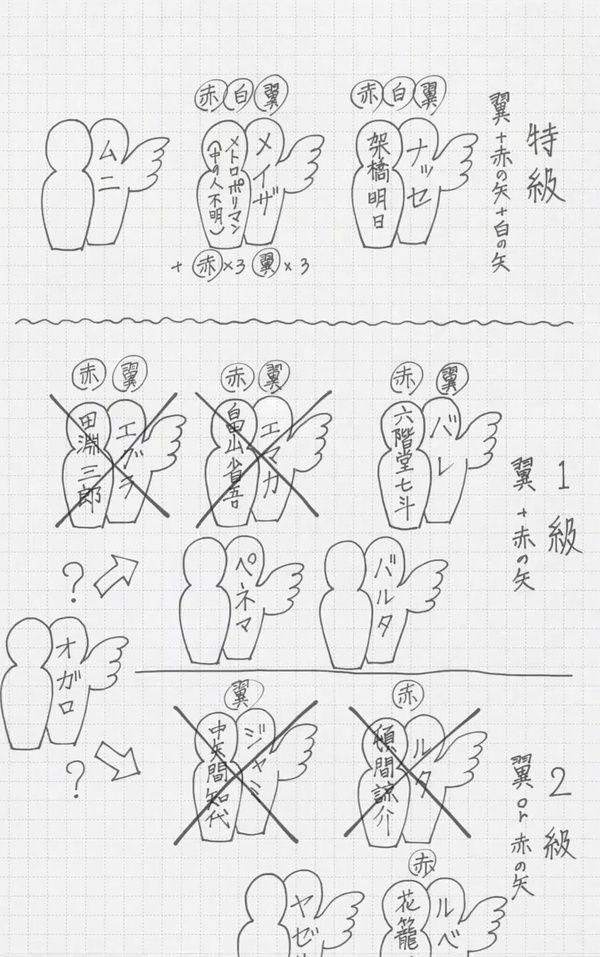 特級
翼+赤の矢+白の矢
赤白翼
ナッセ
架橋明日
赤白翼
メイザ
メトロポリマン
(中の人不明)
+赤×3 翼×3
ムニ
1級
翼+赤の矢
赤 翼
バレ
六階堂七斗
赤 翼
エマカ
畠山省吾
赤 翼
エグラ
田淵三郎
バルタ
ペネマ
?
オガロ
?
2級
翼or赤の矢
赤
ルタ
頓間諒介
翼
ジャミ
中矢間知代
赤
ルベ
花籠
ヤゼ